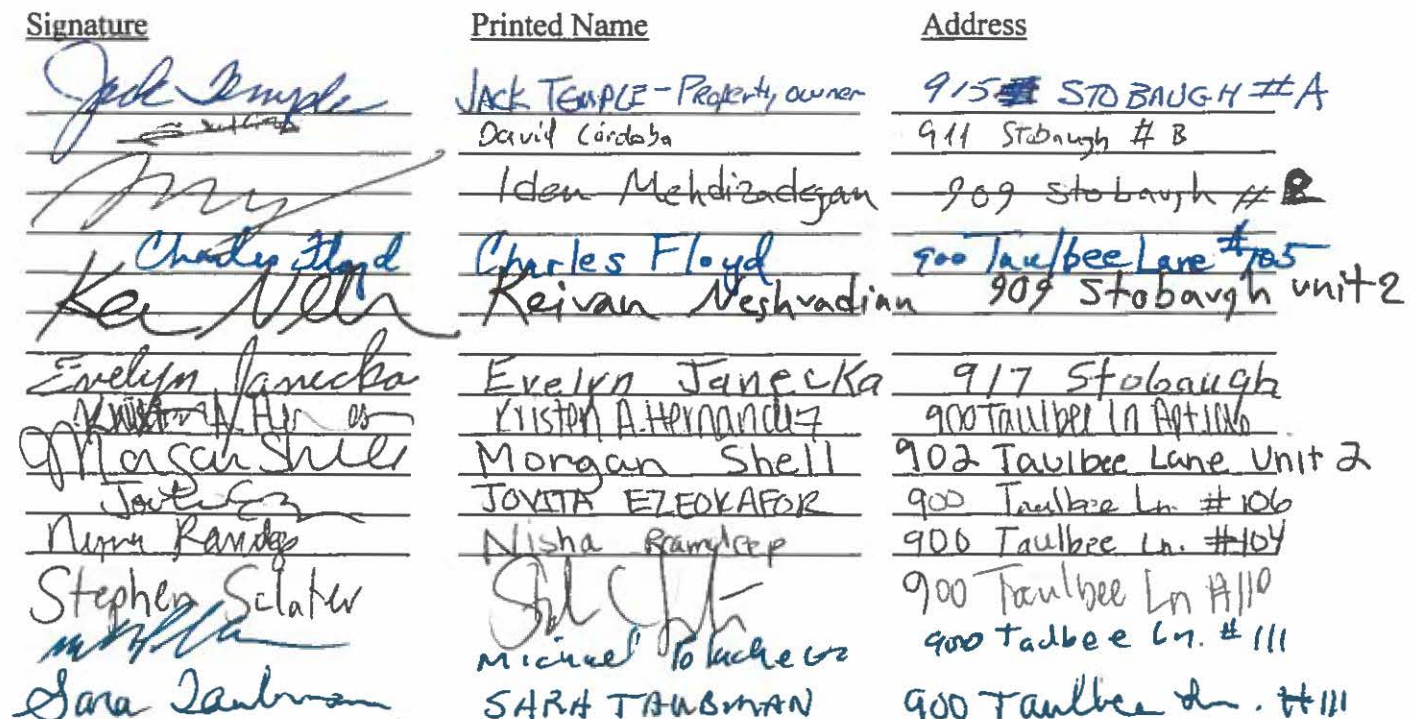 Signature Printed Name Address
Jack Temple JACK TEMPLE - Property owner 915 STOBAUGH #A
David Córdoba 911 Stobaugh # B
Iden Mehdizadegan 909 Stobaugh #
Charles Floyd Charles Floyd 900 Taulbee Lane #105
Keivan Neshvadian 909 Stobaugh unit 2
Evelyn Janecka Evelyn Janecka 917 Stobaugh
Kristen A. Hernandez 900 Taulbee Ln Apt
Morgan Shell Morgan Shell 902 Taulbee Lane Unit 2
JOVITA EZEOKAFOR 900 Taulbee Ln. #106
Nisha 900 Taulbee Ln. #104
Stephen Sclater 900 Taulbee Ln #110
Michael 900 Taulbee Ln. #111
Sara Taubman SARA TAUBMAN 900 Taulbee Ln. #111